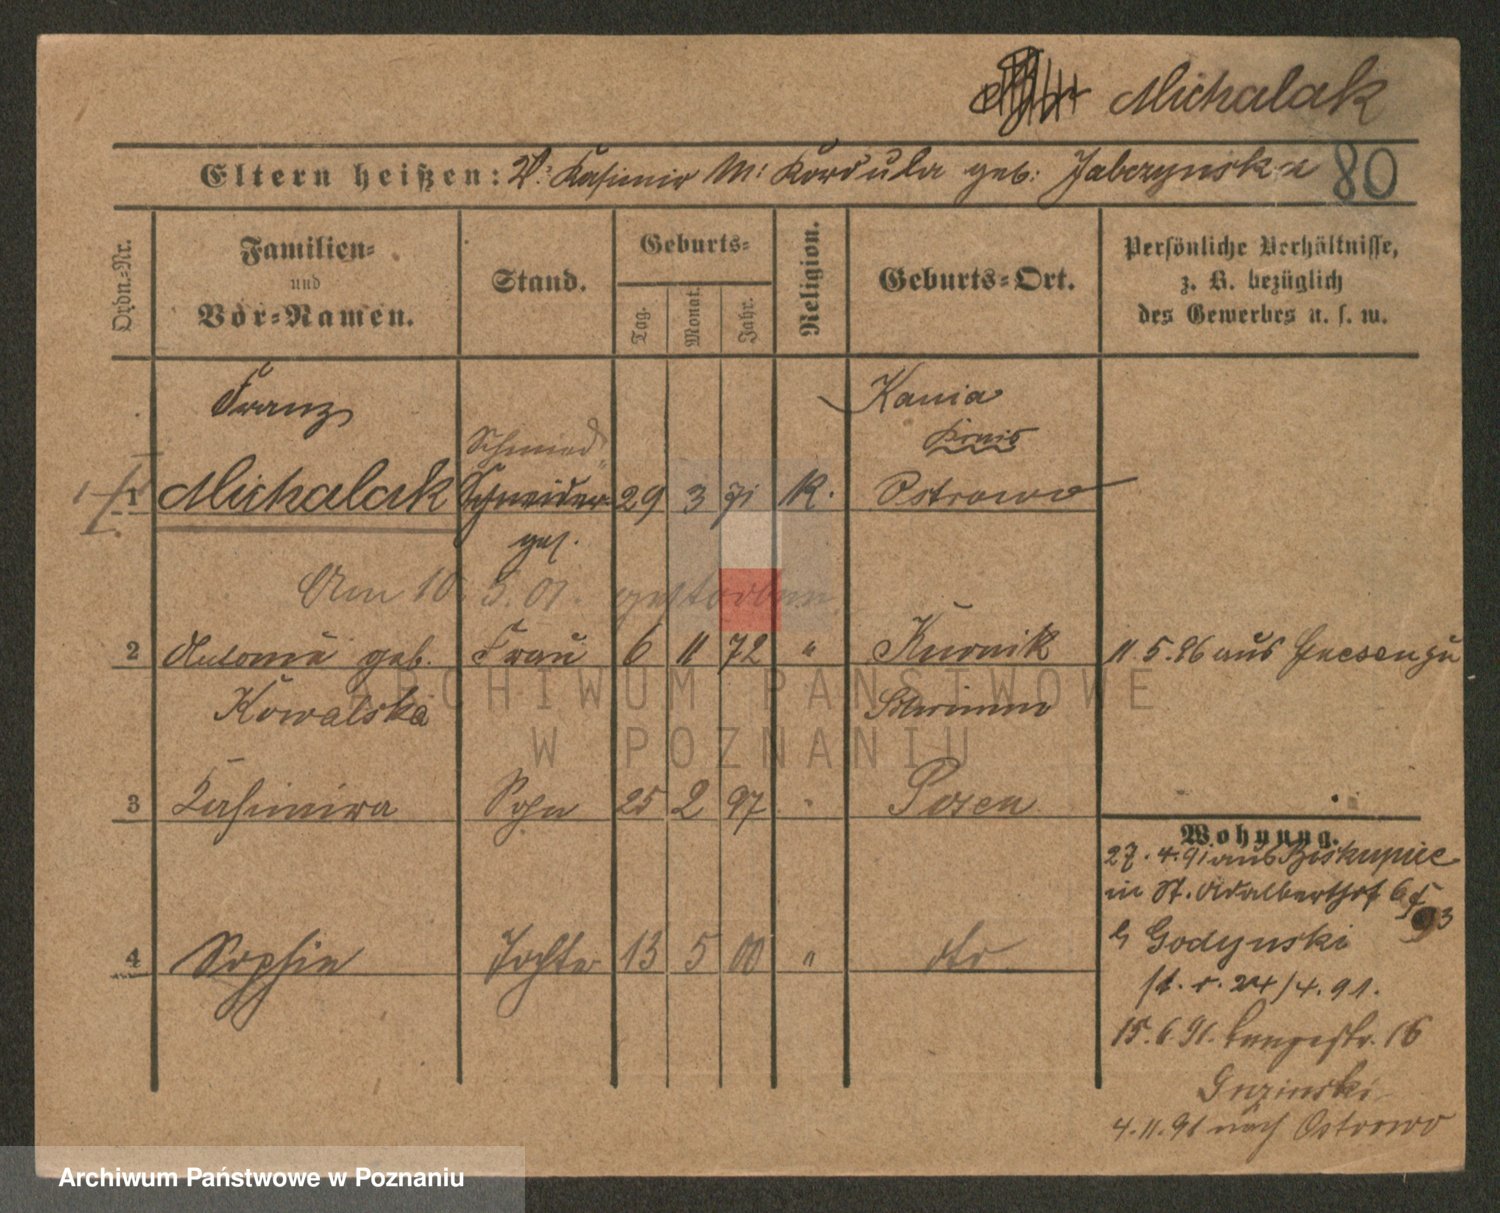 Michalak
Eltern heißen: V: Kasimir M: Kordula geb: Jabczynska
80
Ordn.-Nr.
Familien-
und
Vor-Namen.
Stand.
Geburts-
Tag.
Monat.
Jahr.
Religion.
Geburts-Ort.
Persönliche Verhältnisse,
z. B. bezüglich
des Gewerbes u. s. w.
Franz
Kania
Schmied
Kreis
1 Michalak Schneider 29 3 71 K. Ostrowo
ges.
Am 10. 5. 01. gestorben
2 Antonie geb. Frau 6 11 72 " Kurnik 11. 5. 96 aus Gnesen zu
Kowalska Schrimm
3 Kasimira Sohn 25 2 97 " Posen
Wohnung.
27. 4. 91 aus Biskupice
in St. Adalberthof 6
b Godynski
24/4. 91.
4 Sophie Tochter 13 5 00 " dto
15. 6. 91. Langestr. 16
4. 11. 91 nach Ostrowo
ARCHIWUM PAŃSTWOWE
W POZNANIU
Archiwum Państwowe w Poznaniu